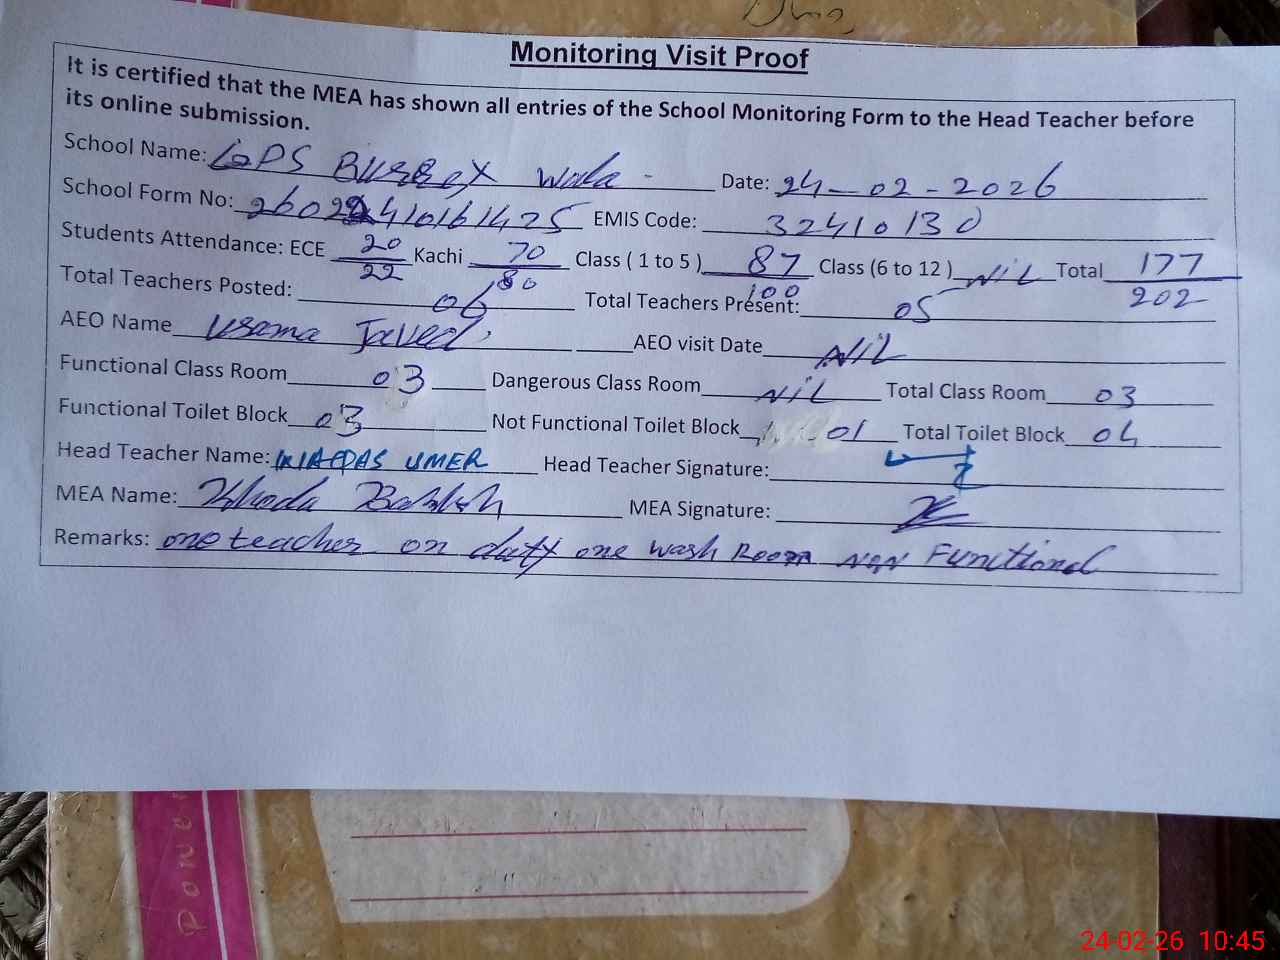 Monitoring Visit Proof
It is certified that the MEA has shown all entries of the School Monitoring Form to the Head Teacher before
its online submission.
School Name: GPS Wala Date: 24-02-2026
School Form No: EMIS Code: 32410130
Students Attendance: ECE 20/22 Kachi 70/80 Class ( 1 to 5 ) 87/100 Class (6 to 12 ) NIL Total 177/202
Total Teachers Posted: 06 Total Teachers Present: 05
AEO Name Usama Javed AEO visit Date NIL
Functional Class Room 03 Dangerous Class Room NIL Total Class Room 03
Functional Toilet Block 03 Not Functional Toilet Block 01 Total Toilet Block 04
Head Teacher Name: UMER Head Teacher Signature:
MEA Name: Khoda Bakhsh MEA Signature:
Remarks: one teacher on duty one wash Room NON Functional
24-02-26 10:45